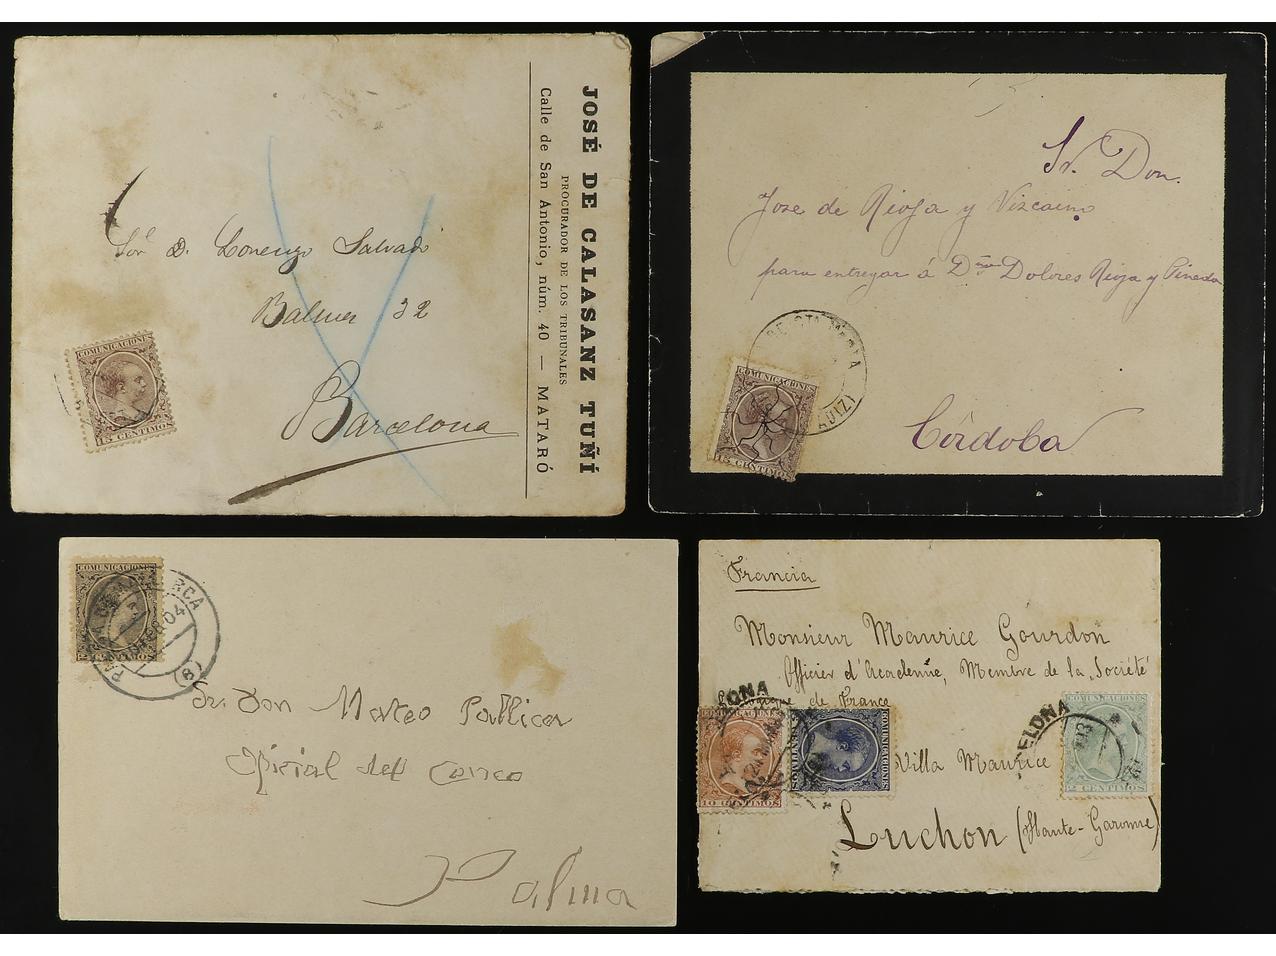 JOSÉ DE CALASANZ TUÑÍ
PROCURADOR DE LOS TRIBUNALES
Calle de San Antonio, núm. 40 — MATARÓ
Sor. D. Lorenzo Salvadó
Balmes 32
Barcelona
COMUNICACIONES
15 CENTIMOS
Sr. Don.
Jose de Rioja y Vizcaino
para entregar á Dña Dolores Rioja y Pineda
Córdoba
COMUNICACIONES
15 CENTIMOS
COMUNICACIONES
04
(8)
Sr. Don Mateo
Oficial del Correo
Palma
Francia
Monsieur Maurice Gourdon
Officier d'Academie, Membre de la Société
de France
Villa Maurice
Luchon (Haute-Garonne)
COMUNICACIONES
10 CENTIMOS
COMUNICACIONES
COMUNICACIONES
2 CENTIMOS